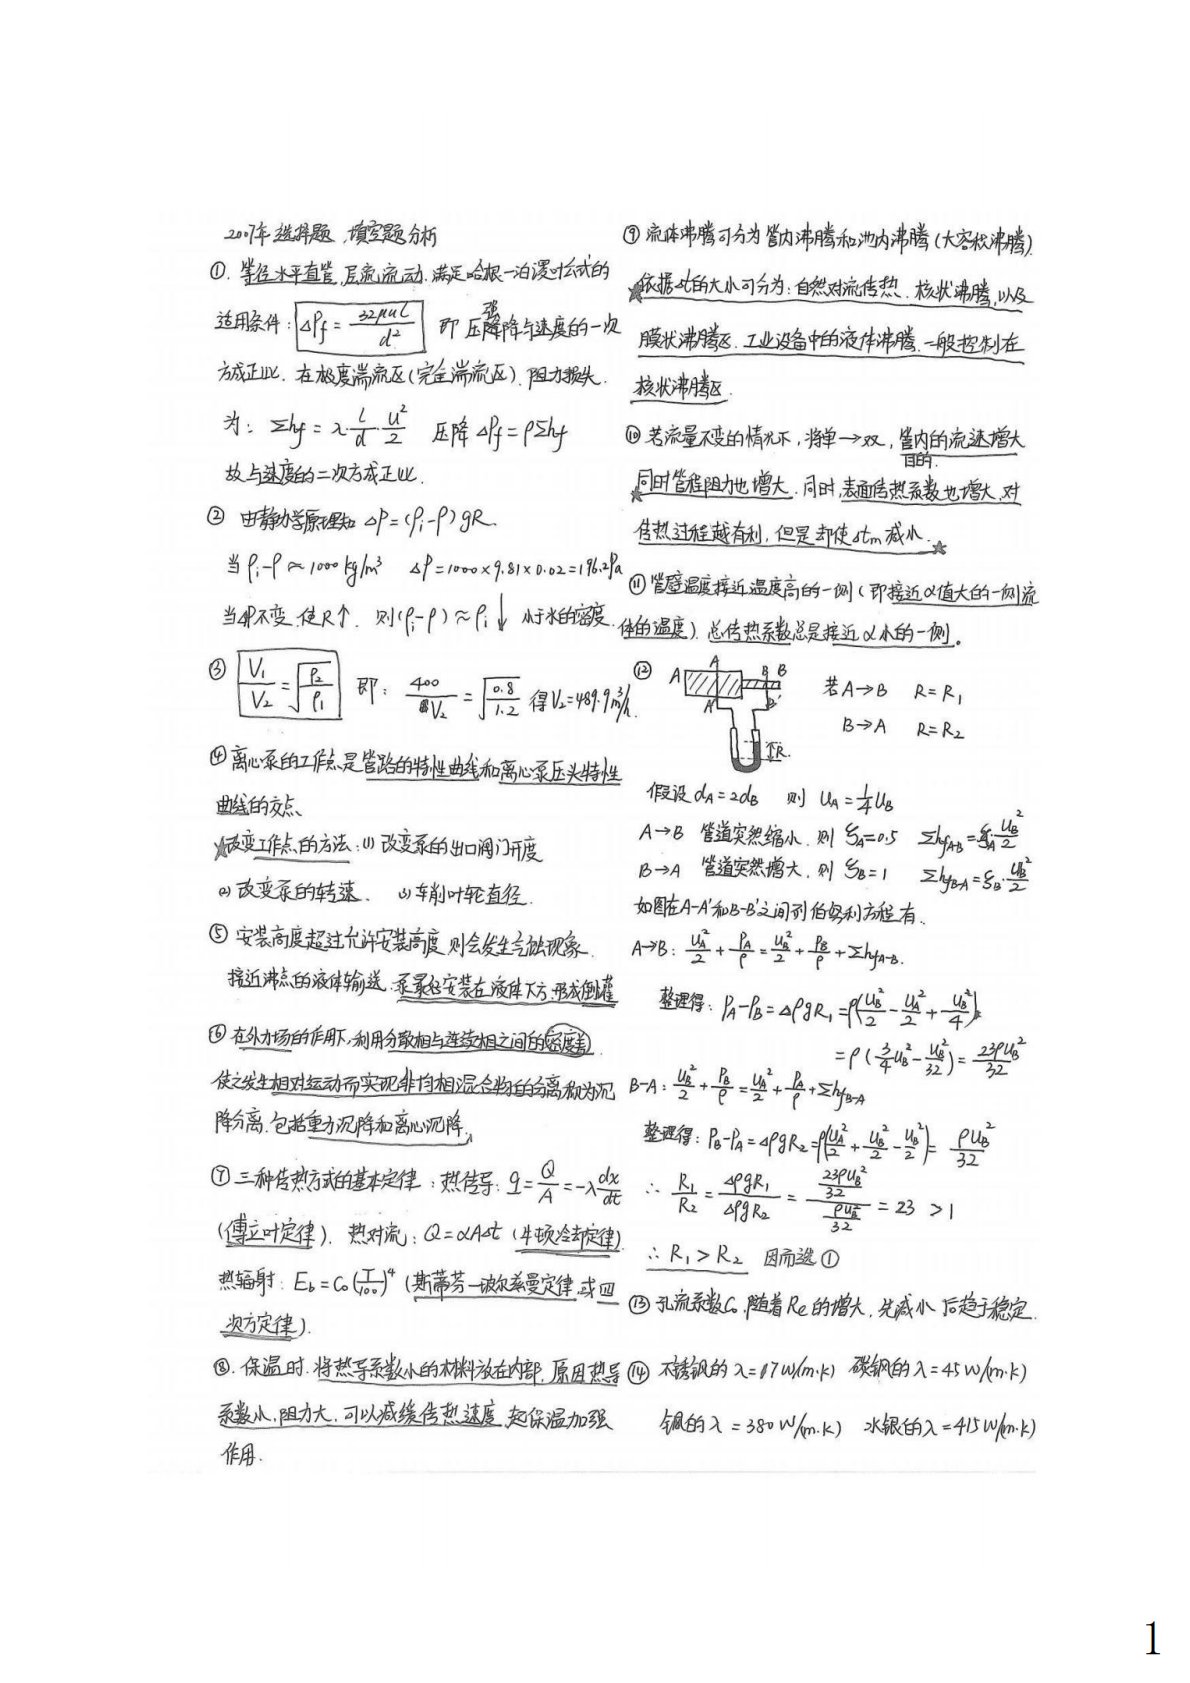 2007年选择题、填空题分析
①. 等径水平直管,层流流动.满足哈根一泊谡叶公式的
适用条件: ΔPf = 32μul/d² 即压强降与速度的一次
方成正比. 在极度湍流区(完全湍流区). 阻力损失
为: Σhf = λ·l/d·u²/2 压降 ΔPf = ρΣhf
故与速度的二次方成正比.
② 由静力学原理知 ΔP=(ρi-ρ)gR.
当 ρi-ρ≈1000kg/m³ ΔP=1000×9.81×0.02=196.2Pa
当ΔP不变.使R↑. 则(ρi-ρ)≈ρi↓ 小于水的密度.
③ V₁/V₂=√(ρ₂/ρ₁) 即: 400/V₂=√(0.8/1.2) 得V₂=489.9m³/h.
④ 离心泵的工作点是管路的特性曲线和离心泵压头特性
曲线的交点、
☆改变工作点的方法:(1) 改变泵的出口阀门开度
(2) 改变泵的转速. (3) 车削叶轮直径.
⑤ 安装高度超过允许安装高度,则会发生气蚀现象.
接近沸点的液体输送.泵最好安装在液体下方.形成倒灌
⑥ 在外力场的作用下,利用分散相与连续相之间的密度差
使之发生相对运动而实现非均相混合物的分离称为沉
降分离.包括重力沉降和离心沉降.
⑦ 三种传热方式的基本定律:热传导: q=Q/A=-λdx/dt
(傅立叶定律). 热对流:Q=αAΔt (牛顿冷却定律)
热辐射: Eb=C₀(T/100)⁴ (斯蒂芬一坡尔兹曼定律.或四
次方定律).
⑧. 保温时.将热导系数小的材料放在内部.原因热导
系数小,阻力大.可以减缓传热速度.起保温加强
作用.
⑨ 流体沸腾可分为管内沸腾和池内沸腾(大容积沸腾).
☆依据Δt的大小可分为:自然对流传热.核状沸腾,以及
膜状沸腾区. 工业设备中的液体沸腾.一般控制在
核状沸腾区.
⑩ 若流量不变的情况下,将单→双,管内的流速增大
目的.
☆同时管程阻力也增大.同时,表面传热系数也增大.对
传热过程越有利,但是却使Δtm减小.☆
⑪ 管壁温度接近温度高的一侧(即接近α值大的一侧流
体的温度). 总传热系数总是接近α小的一侧。
⑫ A A A' B B B' R. 若A→B R=R₁
B→A R=R₂
假设 dA=2dB 则 uA=¼uB
A→B 管道突然缩小.则 ξA=0.5 ΣhfA-B=ξA·uB²/2
B→A 管道突然增大.则 ξB=1 ΣhfB-A=ξB·uB²/2
如图在A-A'和B-B'之间列伯努利方程有.
A→B: uA²/2+PA/ρ=uB²/2+PB/ρ+ΣhfA-B.
整理得: PA-PB=ΔρgR₁=ρ(uB²/2-uA²/2+uB²/4)
=ρ(¾uB²-uB²/32)=23ρuB²/32
B-A: uB²/2+PB/ρ=uA²/2+PA/ρ+ΣhfB-A
整理得: PB-PA=ΔρgR₂=ρ(uA²/2+uB²/2-uB²/2)=ρuB²/32
∴ R₁/R₂=ΔρgR₁/ΔρgR₂=(23ρuB²/32)/(ρuB²/32)=23 >1
∴ R₁>R₂ 因而选①
⑬ 孔流系数C₀.随着Re的增大.先减小 后趋于稳定.
⑭ 不锈钢的λ=17W/(m·k) 碳钢的λ=45W/(m·k)
铜的λ=380W/(m·k) 水银的λ=415W/(m·k)
1